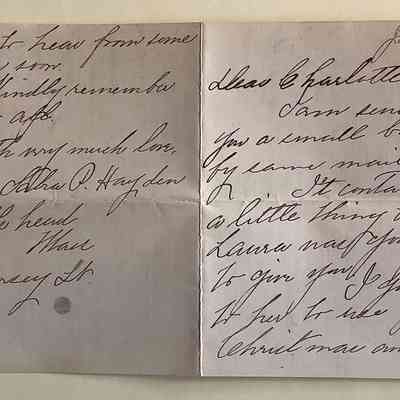 to hear from some
soon.
Kindly remember
all.
th very much love,
P. Hayden
head
Mass
sey St.
Dear Charlotte
I am sen
you a small b
by same mail
It conta
a little thing
Laura was you
to give you. I g
to her to use
Christmas an